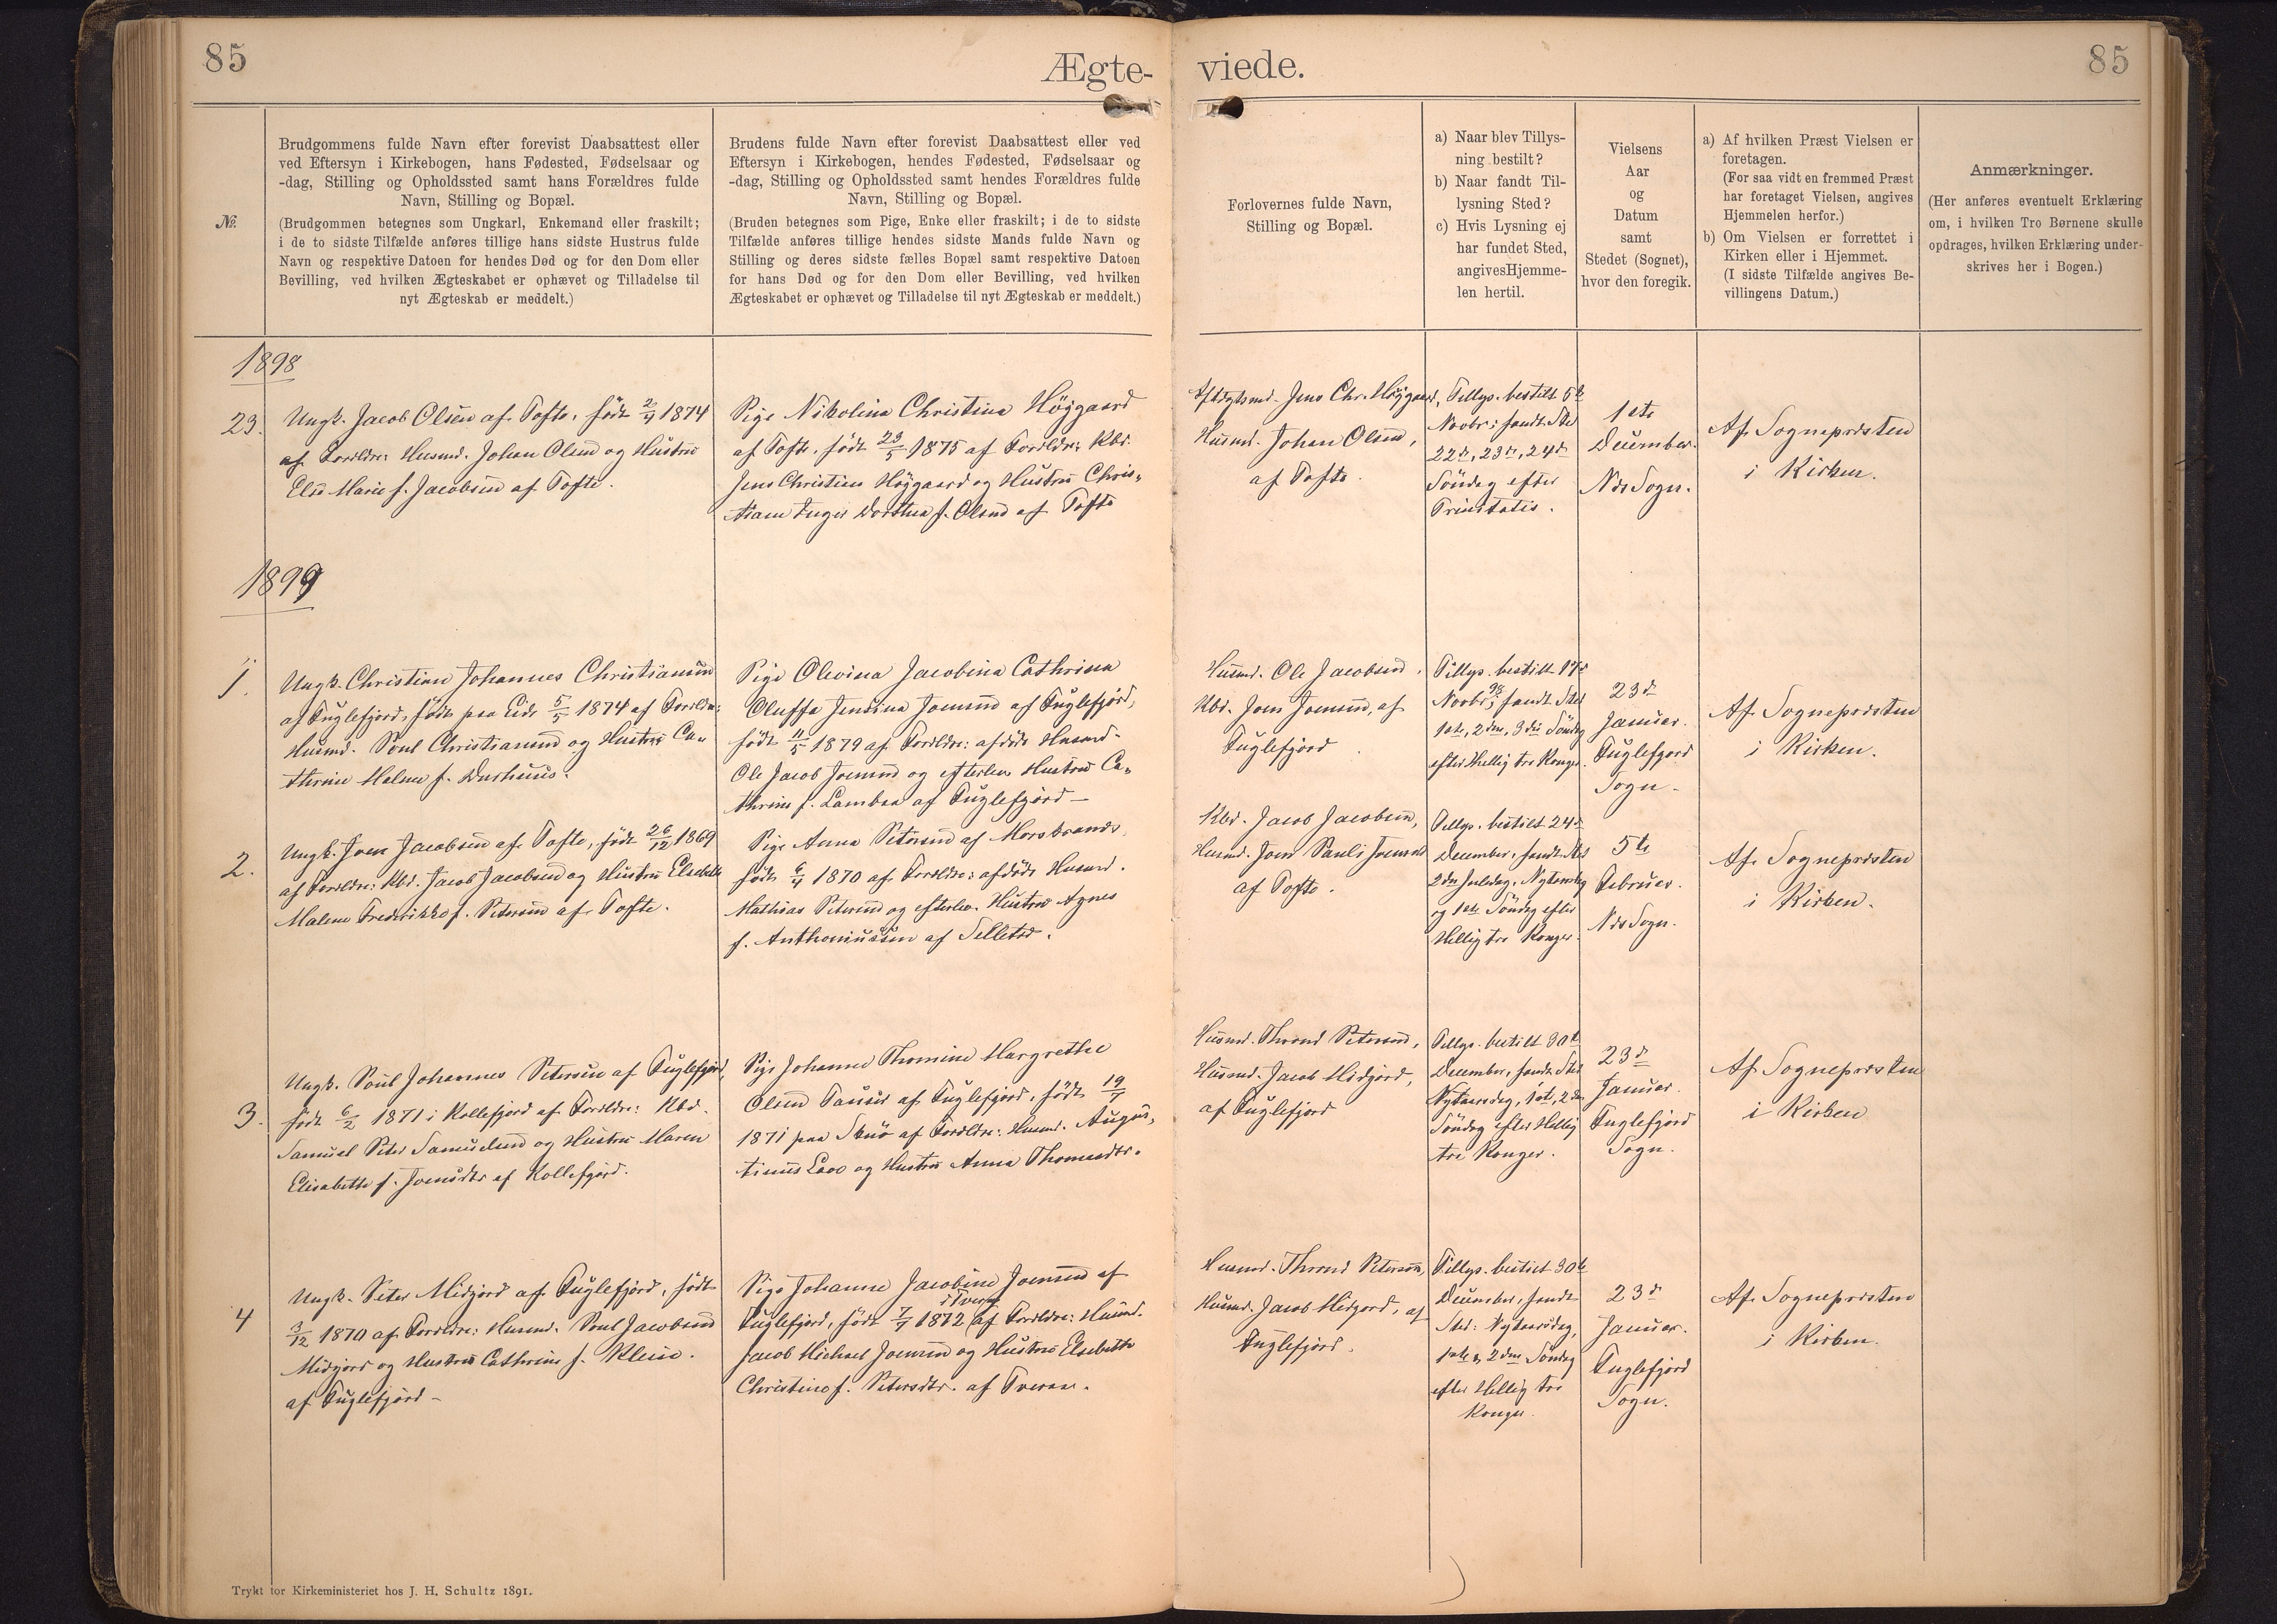 85
Ægte-
viede.
85
№.
Brudgommens fulde Navn efter forevist Daabsattest eller
ved Eftersyn i Kirkebogen, hans Fødested, Fødselsaar og
-dag, Stilling og Opholdssted samt hans Forældres fulde
Navn, Stilling og Bopæl.
(Brudgommen betegnes som Ungkarl, Enkemand eller fraskilt;
i de to sidste Tilfælde anføres tillige hans sidste Hustrus fulde
Navn og respektive Datoen for hendes Død og for den Dom eller
Bevilling, ved hvilken Ægteskabet er ophævet og Tilladelse til
nyt Ægteskab er meddelt.)
Brudens fulde Navn efter forevist Daabsattest eller ved
Eftersyn i Kirkebogen, hendes Fødested, Fødselsaar og
-dag, Stilling og Opholdssted samt hendes Forældres fulde
Navn, Stilling og Bopæl.
(Bruden betegnes som Pige, Enke eller fraskilt; i de to sidste
Tilfælde anføres tillige hendes sidste Mands fulde Navn og
Stilling og deres sidste fælles Bopæl samt respektive Datoen
for hans Død og for den Dom eller Bevilling, ved hvilken
Ægteskabet er ophævet og Tilladelse til nyt Ægteskab er meddelt.)
Forlovernes fulde Navn,
Stilling og Bopæl.
a) Naar blev Tillys-
ning bestilt?
b) Naar fandt Til-
lysning Sted?
c) Hvis Lysning ej
har fundet Sted,
angivesHjemme-
len hertil.
Vielsens
Aar
og
Datum
samt
Stedet (Sognet),
hvor den foregik.
a) Af hvilken Præst Vielsen er
foretagen.
(For saa vidt en fremmed Præst
har foretaget Vielsen, angives
Hjemmelen herfor.)
b) Om Vielsen er forrettet i
Kirken eller i Hjemmet.
(I sidste Tilfælde angives Be-
villingens Datum.)
Anmærkninger.
(Her anføres eventuelt Erklæring
om, i hvilken Tro Børnene skulle
opdrages, hvilken Erklæring under-
skrives her i Bogen.)
1898
23.
Ungk. Jacob Olsen af Tofte, født 2/4 1874
af Forældre: Husmd. Johan Olsen og Hustru
Else Marie f. Jacobsen af Tofte.
Pige Nikolina Christina Höjgaard
af Tofte, født 23/5 1875 af Forældre: Kbd.
Jens Christian Höjgaard og Hustru Chris-
tiane Inger Dorthea f. Olsen af Tofte
Aftægtsmd. Jens Chr. Höjgaard,
Husmd. Johan Olsen,
af Tofte.
Tillys. bestilt 5te
Novbr: fandt Sted
22de, 23de, 24de
Söndag efter
Trinitatis.
1ste
December.
Nes Sogn.
Af Sognepræsten
i Kirken.
1899
1.
Ungk. Christian Johannes Christiansen
af Fuglefjord, født paa Eide 5/5 1874 af Forældre:
Husmd. Poul Christiansen og Hustru Ca-
thrine Malene f. Durhuus.
Pige Olevina Jacobina Cathrina
Oluffa Jensina Joensen af Fuglefjord,
født 11/5 1879 af Forældre: afdöde Husmd.
Ole Jacob Joensen og efterlev. Hustru Ca-
thrine f. Lambaa af Fuglefjord –
Husmd. Ole Jacobsen,
Kbd. Joen Joensen, af
Fuglefjord
Tillys. bestilt 17de
Novbr 98; fandt Sted
1ste, 2den, 3die Söndag
efter Hellig tre Konger.
23de
Januar.
Fuglefjord
Sogn.
Af Sognepræsten
i Kirken.
2.
Ungk. Joen Jacobsen af Tofte, født 26/12 1869
af Forældre: Kbd. Jacob Jacobsen og Hustru Elsebeth
Malene Frederikke f. Petersen af Tofte.
Pige Anna Petersen af Morskranes,
født 6/4 1870 af Forældre: afdöde Husmd.
Mathias Petersen og efterlev. Hustru Agnes
f. Anthoniussen af Selletræ.
Kbd. Jacob Jacobsen,
Husmd. Joen Pauli Joensen
af Tofte.
Tillys. bestilt 24de
December, fandt Sted
2den Juledag, Nytaarsdag
og 1ste Söndag efter
Hellig tre Konger.
5te
Februar.
Nes Sogn.
Af Sognepræsten
i Kirken.
3.
Ungk. Poul Johannes Petersen af Fuglefjord,
født 6/2 1871 i Kollefjord af Forældre: Kbd.
Samuel Peter Samuelsen og Hustru Maren
Elisabeth f. Joensdtr af Kollefjord.
Pige Johanne Thomine Margrethe
Olsen Tausen af Fuglefjord, født 19/7
1871 paa Skuö af Forældre: Husmd. Augus-
tinus Laoe og Hustru Anna Thomasdtr.
Husmd. Thrond Petersen,
Husmd. Jacob Midjord,
af Fuglefjord
Tillys. bestilt 30te
December, fandt Sted
Nytaarsdag, 1ste, 2den
Söndag efter Hellig
tre Konger.
23de
Januar.
Fuglefjord
Sogn.
Af Sognepræsten
i Kirken
4
Ungk. Peter Midjord af Fuglefjord, født
3/12 1870 af Forældre: Husmd. Poul Jacobsen
Midjord og Hustru Cathrine f. Klein.
af Fuglefjord –
Pige Johanne Jacobine Joensen af
Fuglefjord, født 7/7 1872 i Tveraa af Forældre: Husmd.
Jacob Michael Joensen og Hustru Elsebeth
Christine f. Petersdtr. af Tveraa.
Husmd. Thrond Petersen,
Husmd. Jacob Midjord, af
Fuglefjord.
Tillys. bestilt 30te
December, fandt
Sted: Nytaarsdag,
1ste, 2den Söndag
efter Hellig tre
Konger.
23de
Januar.
Fuglefjord
Sogn.
Af Sognepræsten
i Kirken.
Trykt for Kirkeministeriet hos J. H. Schultz 1891.